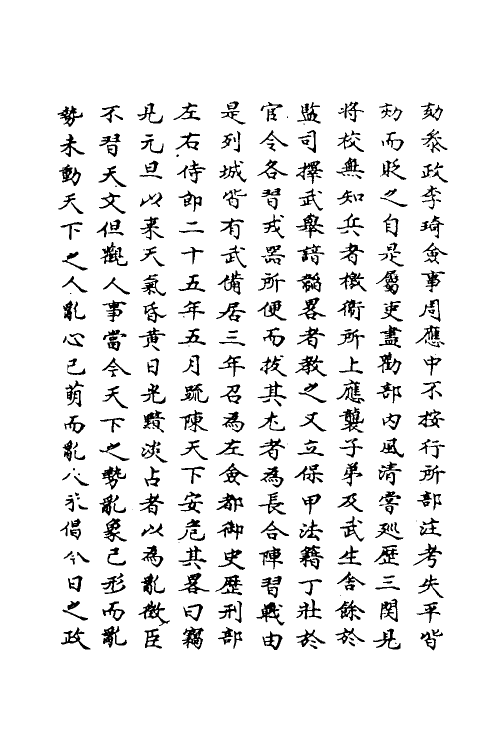 劾叅政李琦僉事周應中不按行所部注考失平皆
劾而貶之自是屬吏盡勸部内風清嘗廵歷三関見
将校無知兵者檄衛所上應襲子弟及武生舎餘於
監司擇武舉諳韜畧者教之又立保甲法籍丁壯於
官令各習戎器所便而拔其尤者為長合陣習戰由
是列城皆有武備居三年召為左僉都御史歴刑部
左右侍郎二十五年五月䟽陳天下安危其畧曰竊
見元旦以来天氣昏黄日光黯淡占者以為亂徴臣
不習天文但觀人事當今天下之勢亂象已形而亂
勢未動天下之人亂心已萌而亂人未倡今日之政